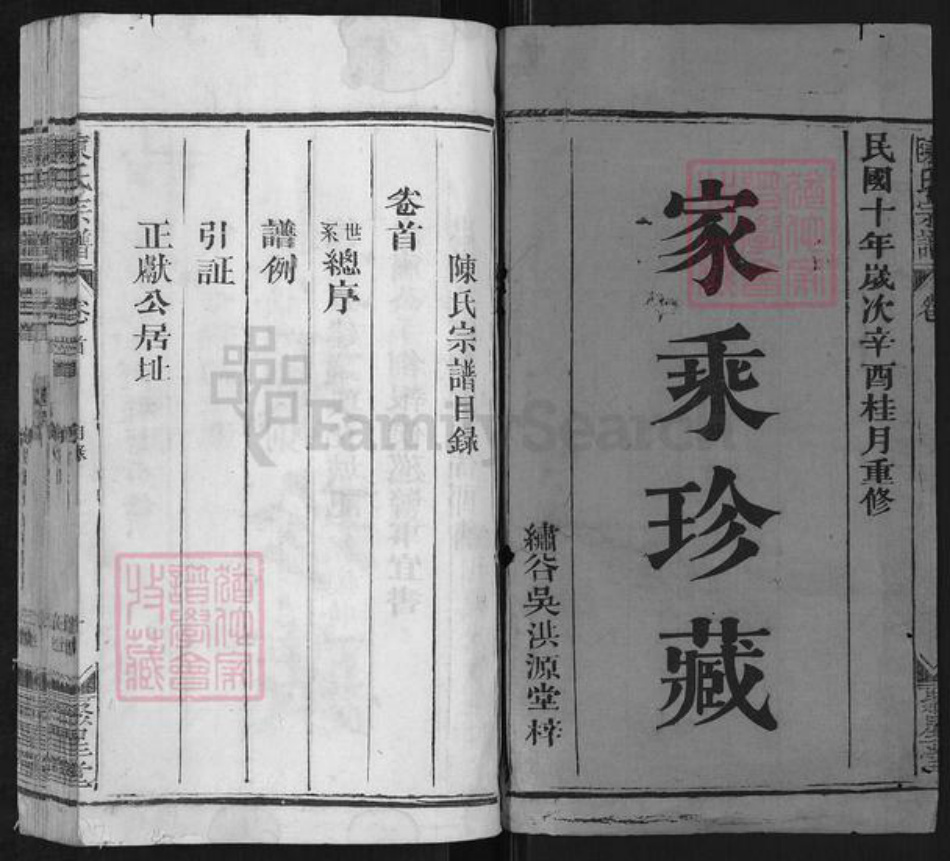 民國十年歲次辛酉桂月重修
家乘珍藏
繡谷吳洪源堂梓
陳氏宗譜目録
卷首
世系總序
譜例
引証
正獻公居址
陳氏宗譜
卷首
目录
FamilySearch